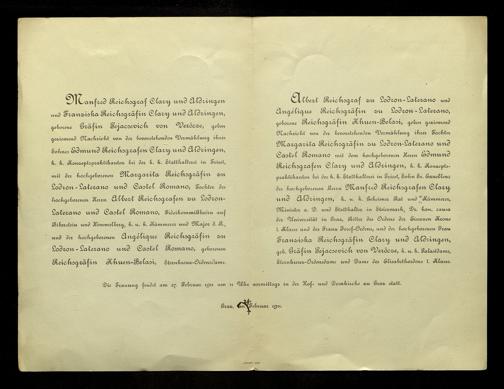 Manfred Reichsgraf Clary und Aldringen
und Franziska Reichsgräfin Clary und Aldringen,
geborene Gräfin Pejacsevich von Verőcze, geben
geziemend Nachricht von der bevorstehenden Vermählung ihres
Sohnes Edmund Reichsgrafen Clary und Aldringen,
k. k. Konzeptspraktikanten bei der k. k. Statthalterei in Triest,
mit der hochgeborenen Margarita Reichsgräfin zu
Lodron-Laterano und Castel Romano, Tochter des
hochgeborenen Herrn Albert Reichsgrafen zu Lodron-
Laterano und Castel Romano, Fideikommißherrn auf
und Himmelberg, k. u. k. Kämmerer und Major d. R.,
und der hochgeborenen Angélique Reichsgräfin zu
Lodron-Laterano und Castel Romano, geborenen
Reichsgräfin Khuen-Belasi, Sternkreuz-Ordensdame.
Albert Reichsgraf zu Lodron-Laterano und
Angélique Reichsgräfin zu Lodron-Laterano,
geborene Reichsgräfin Khuen-Belasi, geben geziemend
Nachricht von der bevorstehenden Vermählung ihrer Tochter
Margarita Reichsgräfin zu Lodron-Laterano und
Castel Romano mit dem hochgeborenen Herrn Edmund
Reichsgrafen Clary und Aldringen, k. k. Konzepts-
praktikanten bei der k. k. Statthalterei in Triest, Sohn Sr. Exzellenz
des hochgeborenen Herrn Manfred Reichsgrafen Clary
und Aldringen, k. u. k. Geheimen Rat und Kämmerer,
Minister a. D. und Statthalter in Steiermark, Dr. hon. causa
der Universität in Graz, Ritter des Ordens der Eisernen Krone
I. Klasse und des Franz Josef-Ordens, und der hochgeborenen Frau
Franziska Reichsgräfin Clary und Aldringen,
geb. Gräfin Pejacsevich von Verőcze, k. u. k. Palastdame,
Sternkreuz-Ordensdame und Dame des Elisabethordens I. Klasse.
Die Trauung findet am 27. Februar 1911 um 11 Uhr vormittags in der Hof- und Domkirche zu Graz statt.
Graz, Februar 1911.